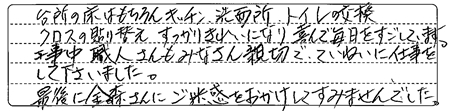 台所の床はもちろんキッチン、洗面所、トイレの交換
クロスの貼り替え、すっかりきれいになり、喜んで毎日をすごしています。
工事中職人さんもみなさん親切で、ていねいに仕事を
して下さいました。
最後に金森さんにご迷惑をおかけしてすみませんでした。